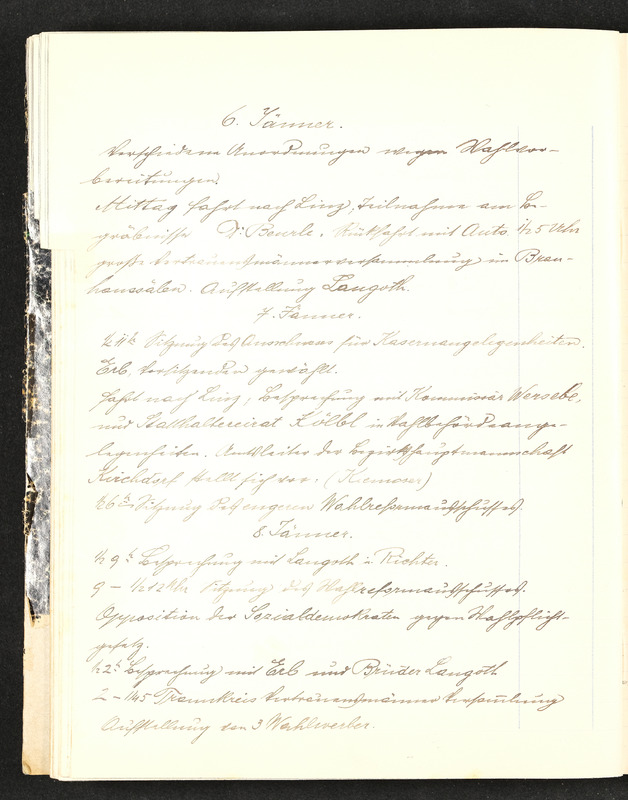 6. Jänner.
Verschiedene Anordnungen wegen Wahlvor-
bereitungen.
Mittag Fahrt nach Linz, Teilnahme am Be-
gräbnisse Dr. Beurle. Rückfahrt mit Auto ½5 Uhr
große Vertrauensmännerversammlung im Brau-
haussälen. Aufstellung Langoth.
7. Jänner.
½11h Sitzung des Ausschuss für Kasernangelegenheiten.
Erb, Vorsitzenden gewählt.
Fahrt nach Linz, Besprechung mit Kommissär Wersebe,
und Statthaltereirat Kölbl in Wahlbehördeange-
legenheiten. Amtsleiter der Bezirkshauptmannschaft
Kirchdorf stellt sich vor. (Kremser)
½6h Sitzung des engeren Wahlreformausschusses.
8. Jänner.
½9h Besprechung mit Langoth u. Richter.
9 – ½12 Uhr Sitzung des Wahlreformausschusses.
Opposition der Sozialdemokraten gegen Wahlpflicht-
gesetz.
½2h Besprechung mit Erb und Brüder Langoth
2 – ¼5 Traunkreis Vertrauensmänner Versammlung
Aufstellung von 3 Wahlwerber.